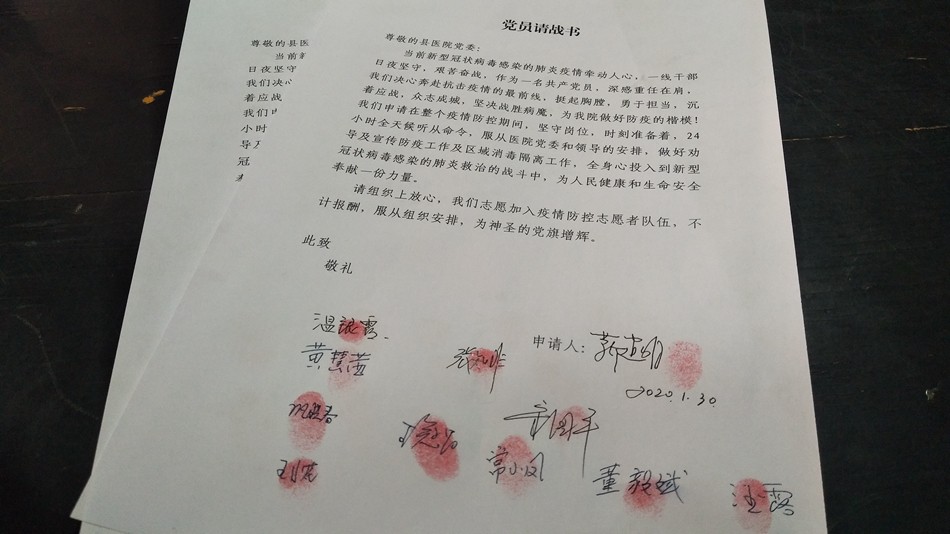 党员请战书
尊敬的县医院党委：
当前新型冠状病毒感染的肺炎疫情牵动人心，一线干部
日夜坚守，艰苦奋战，作为一名共产党员，深感重任在肩，
我们决心奔赴抗击疫情的最前线，挺起胸膛，勇于担当，沉
着应战，众志成城，坚决战胜病魔，为我院做好防疫的楷模！
我们申请在整个疫情防控期间，坚守岗位，时刻准备着，24
小时全天候听从命令，服从医院党委和领导的安排，做好劝
导及宣传防疫工作及区域消毒隔离工作，全身心投入到新型
冠状病毒感染的肺炎救治的战斗中，为人民健康和生命安全
奉献一份力量。
请组织上放心，我们志愿加入疫情防控志愿者队伍，不
计报酬，服从组织安排，为神圣的党旗增辉。
此致
敬礼
申请人：
2020.1.30.
温银霞
黄慧莲
常小凤
董毅斌
汪露
尊敬的县医
当前
日夜坚守
我们决心
着应战
我们
小时
冠